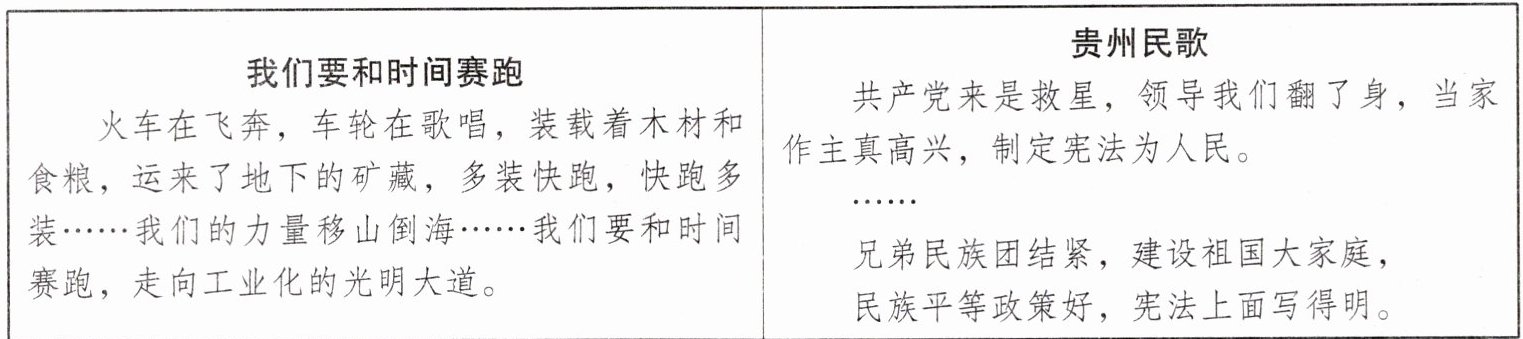 我们要和时间赛跑
火车在飞奔，车轮在歌唱，装载着木材和
食粮，运来了地下的矿藏，多装快跑，快跑多
装……我们的力量移山倒海……我们要和时间
赛跑，走向工业化的光明大道。
贵州民歌
共产党来是救星，领导我们翻了身，当家
作主真高兴，制定宪法为人民。
……
兄弟民族团结紧，建设祖国大家庭，
民族平等政策好，宪法上面写得明。